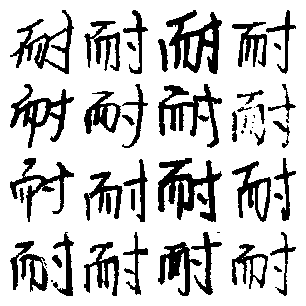 耐耐耐耐
耐耐耐耐
耐耐耐耐
耐耐耐耐